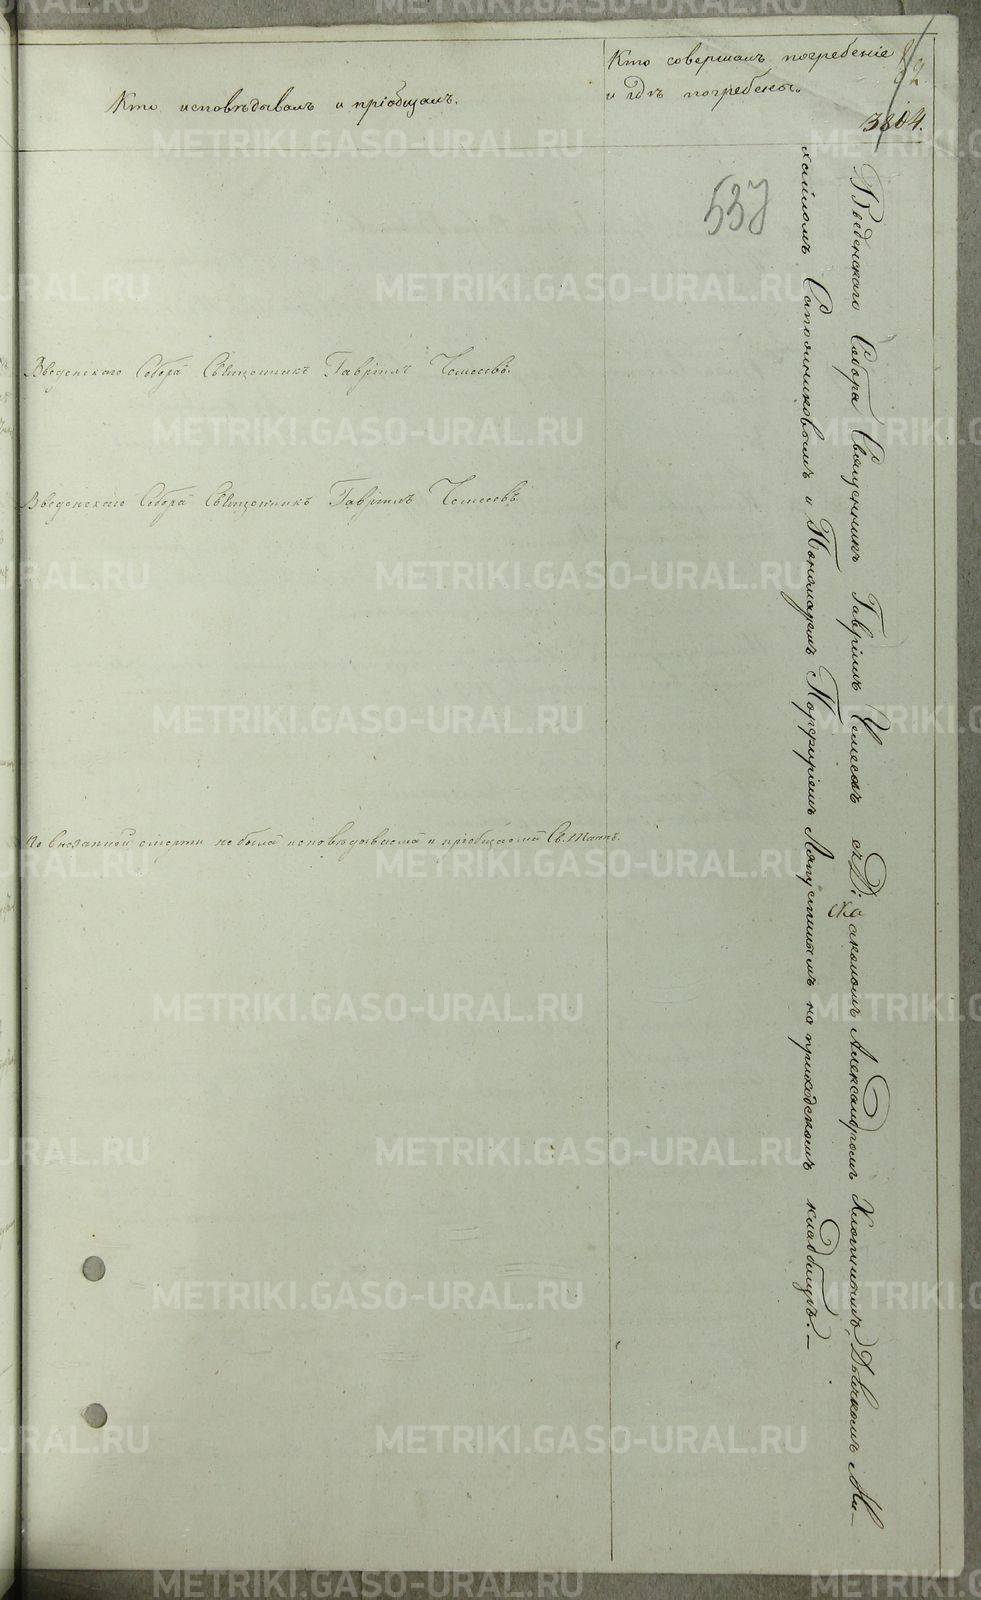 Кто исповѣдывалъ и пріобщалъ.
Кто совершалъ погребеніе
и гдѣ погребены.
82
3804.
537
Введенскаго Собора Священникъ Гавріилъ
Введенскаго Собора Священникъ Гавріилъ
По внезапной смерти не была исповѣдываема и пріобщаема Св. Таинъ.
Введенскаго Собора Священникъ Гавріилъ съ Діакономъ Александромъ Дьячкомъ Ми-
хаиломъ Сапожниковымъ и Пономаремъ Порфиріемъ на приходскомъ кладбищѣ.–
METRIKI.GASO-URAL.RU